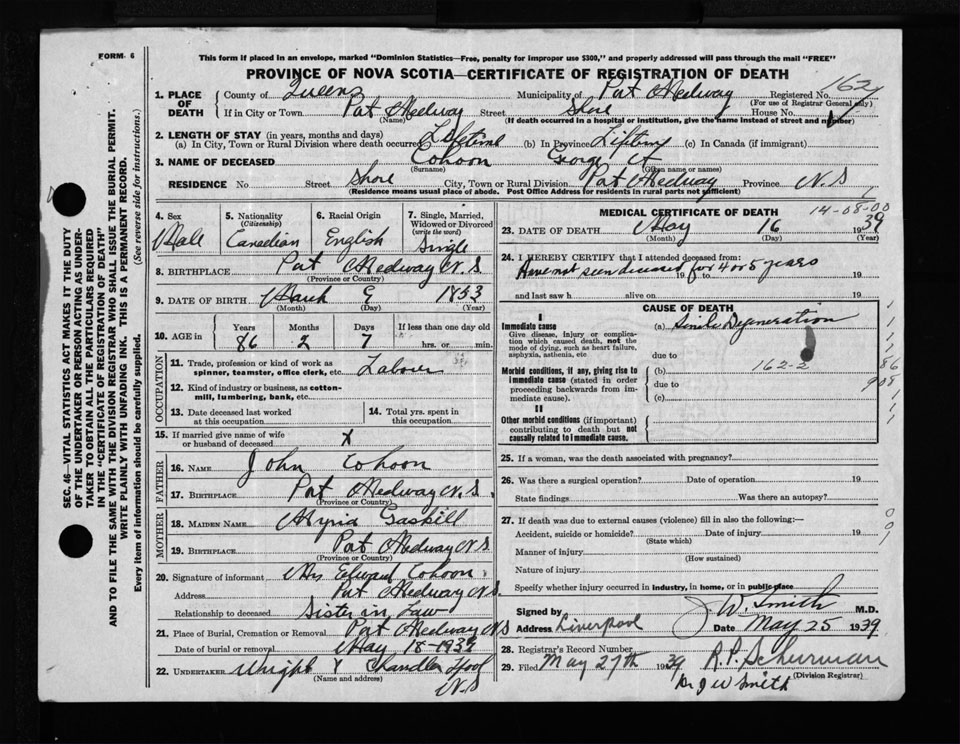 FORM 6
This form if placed in an envelope, marked "Dominion Statistics—Free, penalty for improper use $300," and properly addressed will pass through the mail "FREE"
PROVINCE OF NOVA SCOTIA—CERTIFICATE OF REGISTRATION OF DEATH
SEC. 46—VITAL STATISTICS ACT MAKES IT THE DUTY
OF THE UNDERTAKER OR PERSON ACTING AS UNDER-
TAKER TO OBTAIN ALL THE PARTICULARS REQUIRED
IN THE "CERTIFICATE OF REGISTRATION OF DEATH"
AND TO FILE THE SAME WITH THE DIVISION REGISTRAR WHO SHALL ISSUE THE BURIAL PERMIT.
WRITE PLAINLY WITH UNFADING INK. THIS IS A PERMANENT RECORD.
Every item of information should be carefully supplied. (See reverse side for instructions.)
1. PLACE OF DEATH
County of Queens Municipality of Port Medway Registered No. 162
(For use of Registrar General only)
If in City or Town Port Medway Street Shore House No.
(Name) (If death occurred in a hospital or institution, give the name instead of street and number)
2. LENGTH OF STAY (in years, months and days)
(a) In City, Town or Rural Division where death occurred Lifetime (b) In Province Lifetime (c) In Canada (if immigrant)
3. NAME OF DECEASED Cohoon George A
(Surname) (Given name or names)
RESIDENCE No Street Shore City, Town or Rural Division Port Medway Province N.S
(Residence means usual place of abode. Post Office Address for residents in rural parts not sufficient)
4. Sex Male
5. Nationality (Citizenship) Canadian
6. Racial Origin English
7. Single, Married, Widowed or Divorced (write the word) Single
8. BIRTHPLACE Port Medway N.S
(Province or Country)
9. DATE OF BIRTH March 9 1853
(Month) (Day) (Year)
10. AGE in Years 86 Months 2 Days 7 If less than one day old hrs. or min.
OCCUPATION
11. Trade, profession or kind of work as spinner, teamster, office clerk, etc. Labour
12. Kind of industry or business, as cotton-mill, lumbering, bank, etc.
13. Date deceased last worked at this occupation
14. Total yrs. spent in this occupation
15. If married give name of wife or husband of deceased X
FATHER
16. NAME John Cohoon
17. BIRTHPLACE Port Medway N.S.
(Province or Country)
MOTHER
18. MAIDEN NAME Gaskill
19. BIRTHPLACE Port Medway N.S
(Province or Country)
20. Signature of informant Mrs Edward Cohoon
Address Port Medway N.S.
Relationship to deceased Sister in Law
21. Place of Burial, Cremation or Removal Port Medway N.S
Date of burial or removal May 18-1939
22. UNDERTAKER Wright & Chandler
(Name and address)
N.S
MEDICAL CERTIFICATE OF DEATH 14-08-00
23. DATE OF DEATH May 16 1939
(Month) (Day) (Year)
24. I HEREBY CERTIFY that I attended deceased from:
Have not seen deceased for 4 or 5 years
19 to 19
and last saw h alive on 19
CAUSE OF DEATH
I
Immediate cause
Give disease, injury or complication which caused death, not the mode of dying, such as heart failure, asphyxia, asthenia, etc
(a) Senile Degeneration
due to
Morbid conditions, if any, giving rise to immediate cause (stated in order proceeding backwards from immediate cause).
(b) 162-2
due to
(c)
86
908
II
Other morbid conditions (if important) contributing to death but not causally related to immediate cause.
25. If a woman, was the death associated with pregnancy?
26. Was there a surgical operation? Date of operation 19
State findings Was there an autopsy?
27. If death was due to external causes (violence) fill in also the following:—
Accident, suicide or homicide? Date of injury 19
(State which)
Manner of injury
(How sustained)
Nature of injury
Specify whether injury occurred in industry, in home, or in public place
Signed by J W. Smith M.D.
Address Liverpool Date May 25 1939
28. Registrar's Record Number
29. Filed May 27th 1939 R. P. Schurman
(Division Registrar)
Dr J W Smith